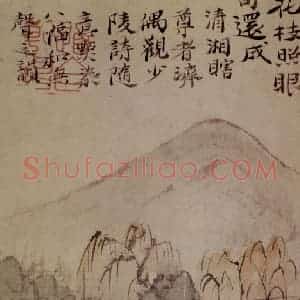 花枝照眼
句還成
清湘瞎
尊者濟
偶觀少
陵詩隨
意
無
聲之
Shufaziliao.COM